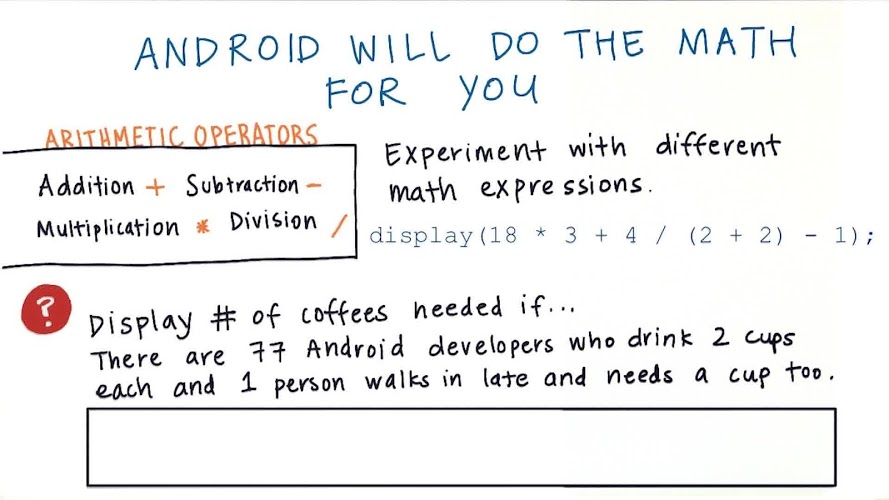 ANDROID WILL DO THE MATH
FOR YOU
ARITHMETIC OPERATORS
Addition + Subtraction -
Multiplication * Division /
Experiment with different
math expressions.
display(18 * 3 + 4 / (2 + 2) - 1);
?
Display # of coffees needed if...
There are 77 Android developers who drink 2 cups
each and 1 person walks in late and needs a cup too.